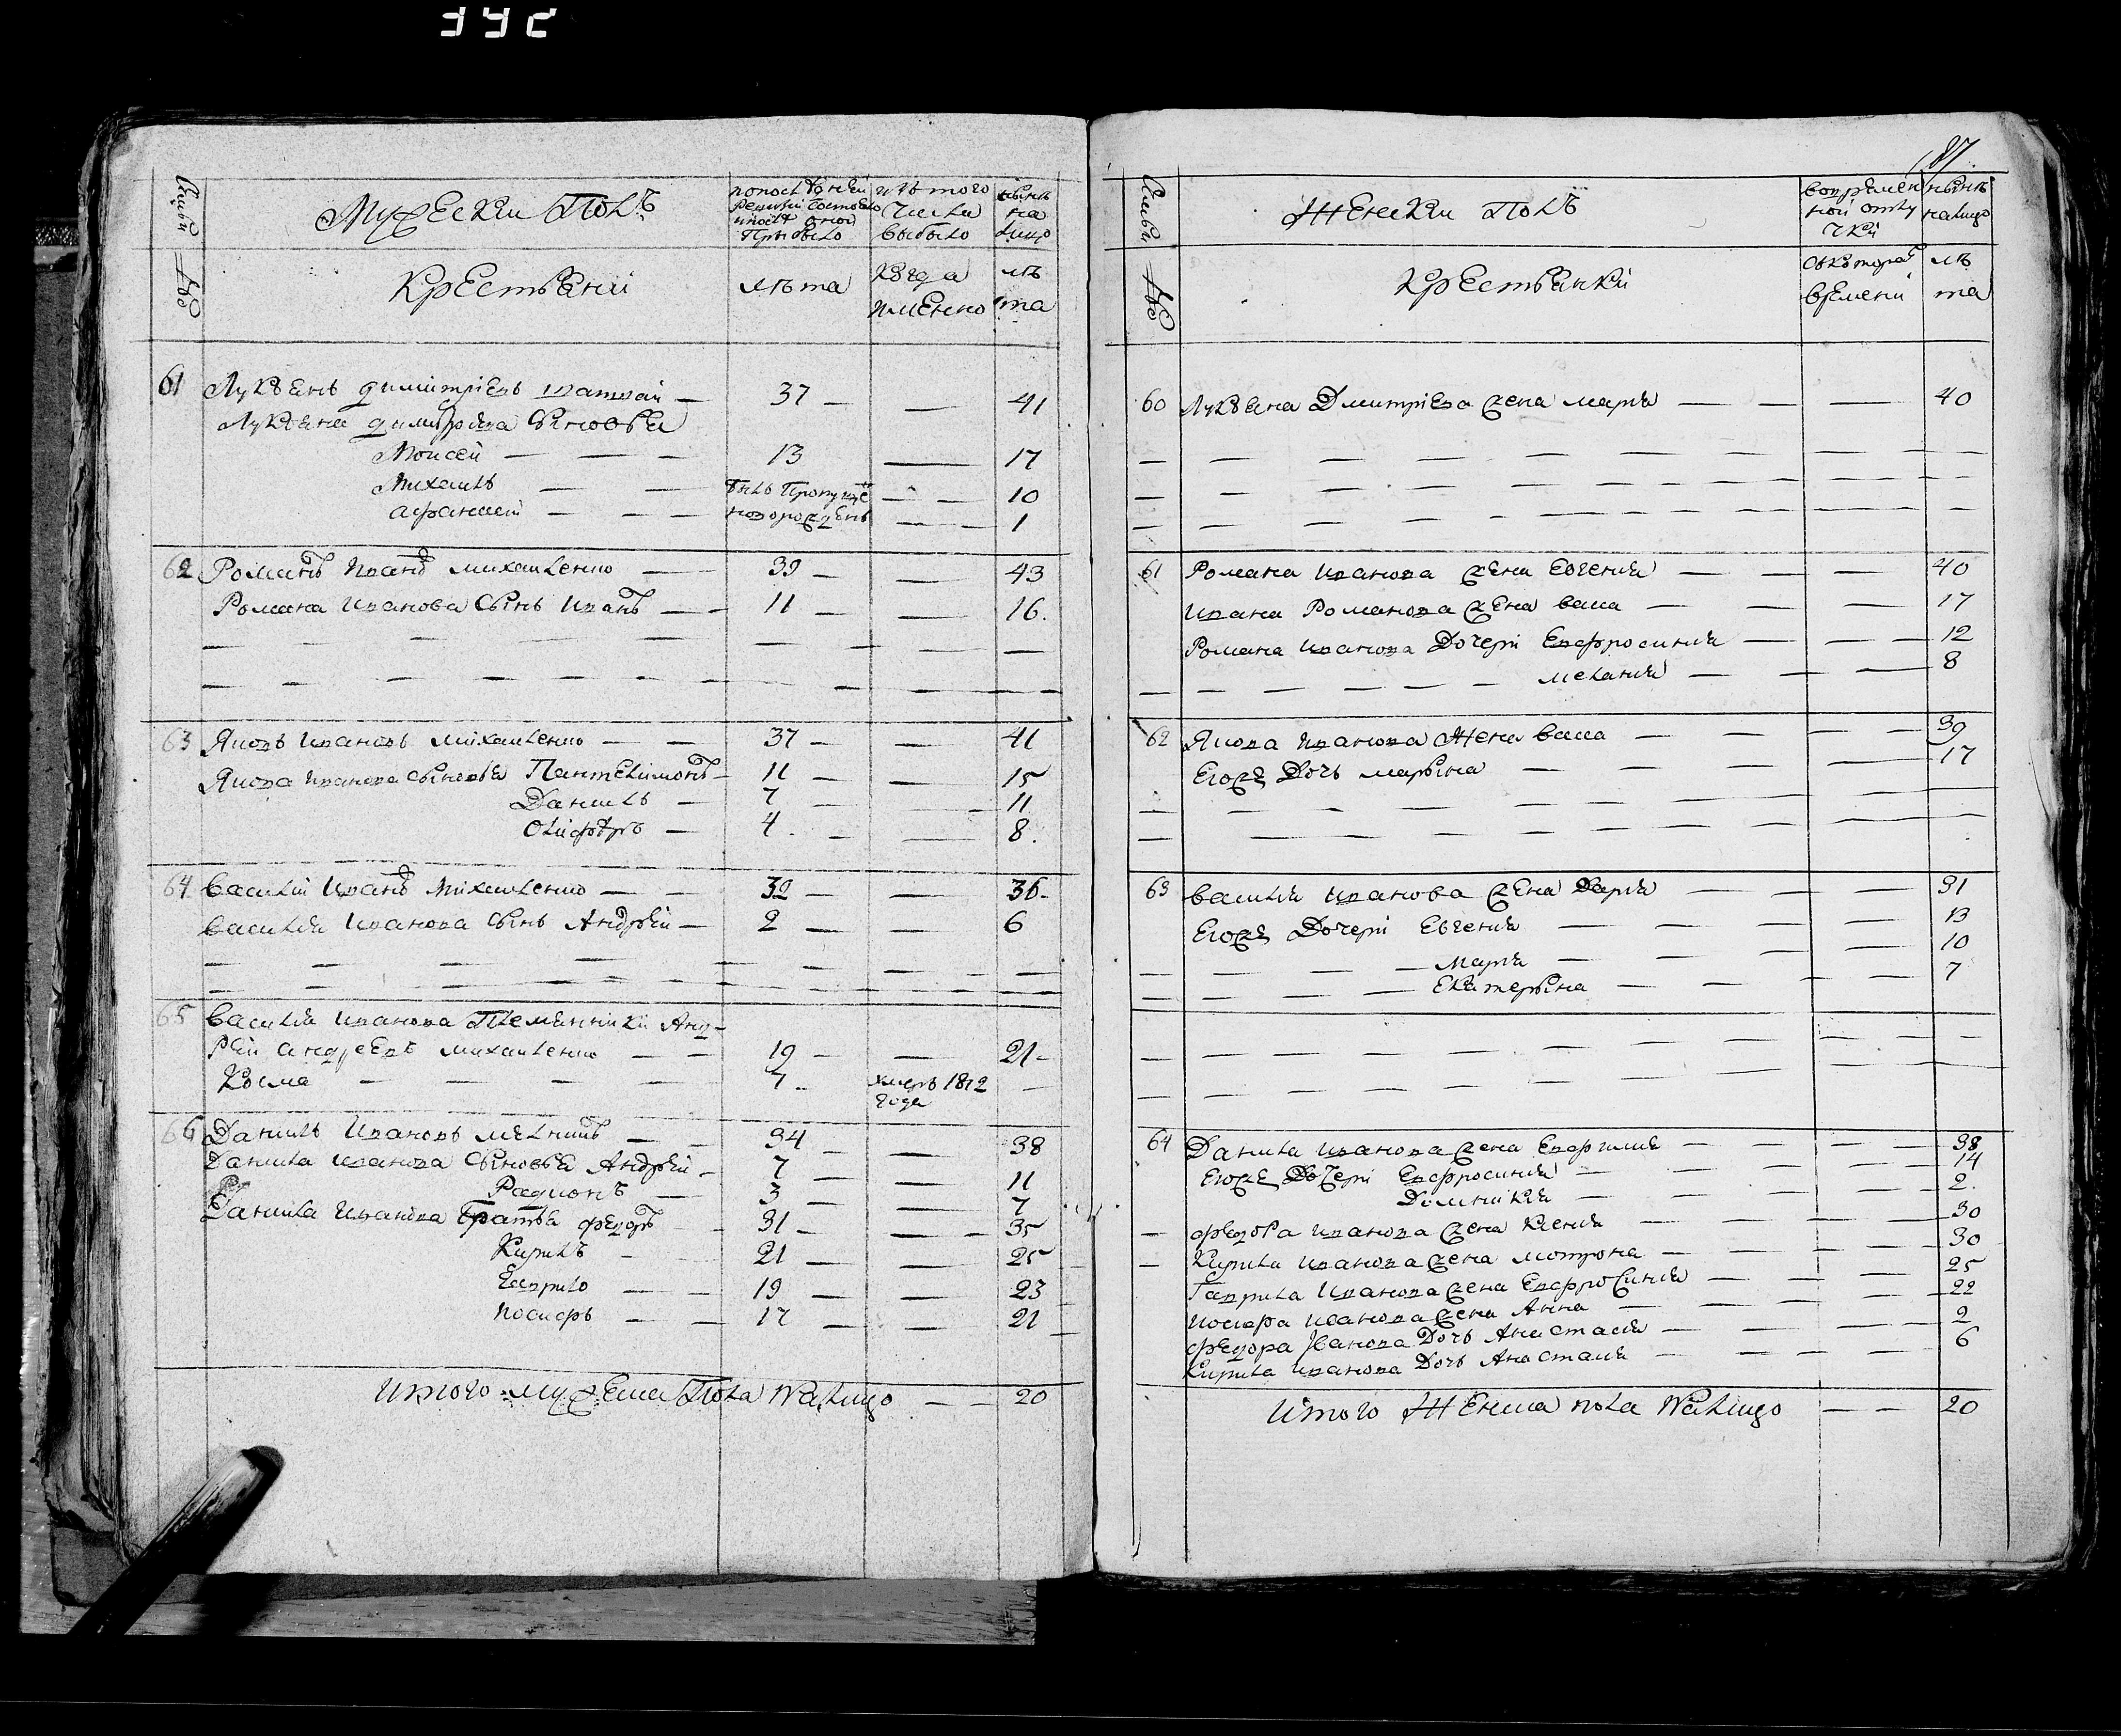 87.
Мужески Полъ
по последней ревизии состояло и после оной прибыло
изъ того числа выбыло
ныне на лицо
Крестьяний
лѣта
когда имянно
лѣ та
61 Лукьянъ димитріевъ — 37 — — 41
Лукьяна димитріева сыновья
Моисей — — — 13 — 17
Михаилъ — — былъ пропуще — — 10
афанасей — — — новорожденъ — — 1
62 Романъ иванъ михаиленко — 39 — — 43
Романа иванова сынъ иванъ — — 11 — — 16.
63 Яковъ ивановъ михаиленко — — 37 — — 41
Якова иванова сыновья Пантелимонъ — 11 — — 15
Данилъ — 7 — — 11
Олиферъ — 4. — — 8.
64 василій иванъ михаиленко — — 32 — — 36 -
василія иванова сынъ Андрѣй — 2 — — 6
65 василія иванова Племянники Анд-
рей андреевъ михаиленко — — 19 — — 21 -
Козма — — — — 7 - умеръ 1812 —
года
66 Данилъ ивановъ мелникъ — — 34 — — 38
Данила иванова сыновья Андрѣй — 7 — — 11
Радионъ — 3 — — 7
Данила иванова братья федоръ — 31 — — — 35
Кирилъ — 21 — — 25
Гаврило — — 19 — — 23
иосифъ — — 17 — — 21
итого мужеска Пола Налицо — — 20
Женски полъ
во временной отлучки
ныне налицо
Крестьянки
съ которого времени
лѣ та
60 Лукьяна Дмитріева жена марія — — — 40
61 Романа иванова жена Евгенія — — — 40
ивана Романова жена васа — — — 17
Романа иванова дочери Евфросинія — — — 12
меланія — — — 8
62 Якова иванова Жена васа — — — — 39
Егожъ Дочь марына — — — — 17
63 василія иванова жена Дарія — — — — 31
Егожъ Дочери Евгенія — — — 13
Марія — — — 10
Екатерына — — — 7
64 Данила иванова жена Евфимія — — — — 38
Егожъ Дочери Евфросинія — — — 14
Домникія — — — 2.
федора иванова жена Ксенія — — — 30
Кирила иванова жена мотрона — — — 30
Гаврила иванова жена Евфросинія — — — 25
иосифа иванова жена Анна — — — 22
федора Іванова Дочь Анастасія — — — 2
Кирила иванова Дочь Анастасія — — — 6
итого Женска пола Налицо — — 20